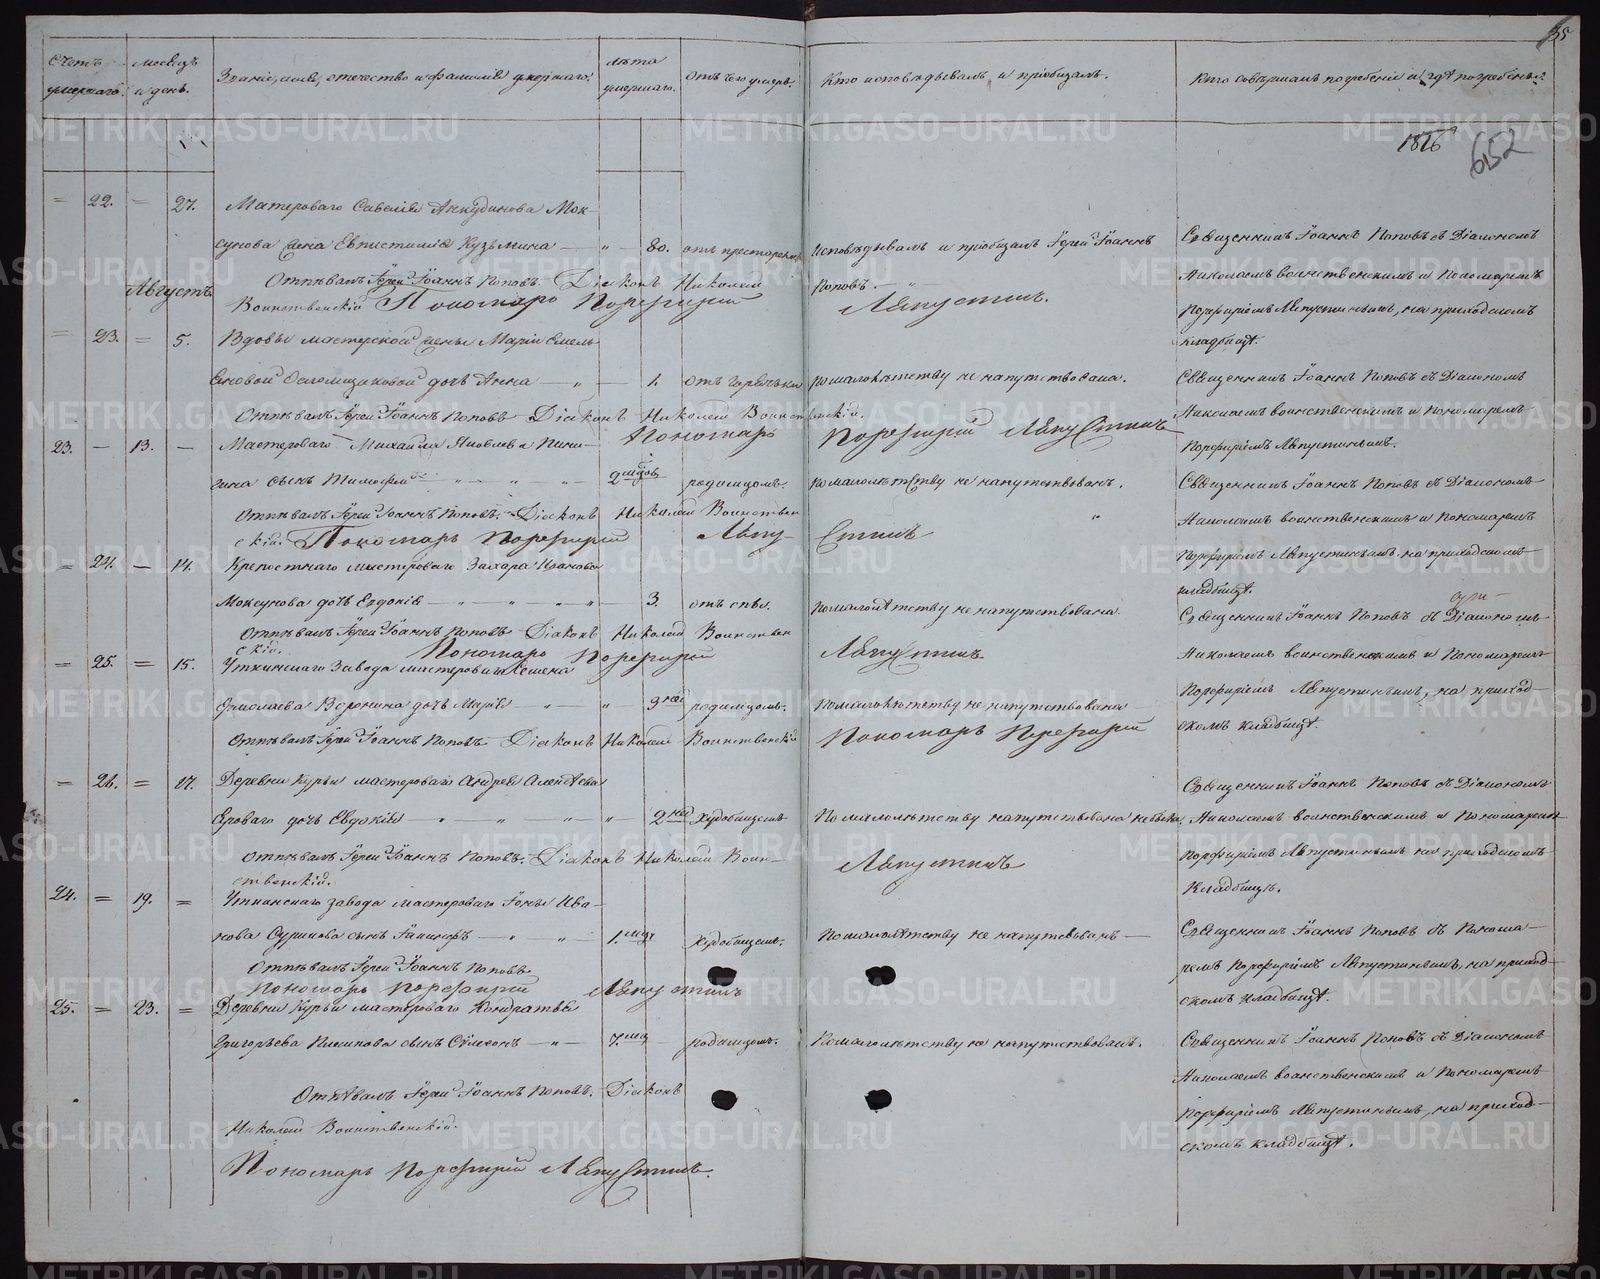 35
Счетъ умершаго.
Месяцъ и день.
Званіе, имя, отечество и фамилія умершаго.
лѣта умершаго.
отъ чего умеръ.
Кто исповѣдывалъ и пріобщалъ.
Кто совѣршалъ погребеніе и гдѣ погребены.
1816
652
22. 27. Матероваго Савелія Анкудинова Мок-
сунова жена Евпистимія Кузьмина 80. отъ престарелости исповѣдывалъ и пріобщалъ Іереи Іоаннъ
Поповъ.
Священникъ Іоаннъ Поповъ съ Діакономъ
Николаемъ воинственскимъ и Пономаремъ
Порфиріемъ Августиновымъ, на приходскомъ
кладбищѣ.
Отпѣвалъ Іереи Іоаннъ Поповъ. Діаконъ Николай
Воинственскій Пономарь Порфирій Августинъ.
Августъ
23. 5. Вдовы мастерской жены Маріи Емель-
яновой дочь Анна 1. отъ горячьки по малолѣтству не напутствована.
Священникъ Іоаннъ Поповъ съ Діакономъ
Николаемъ воинственскимъ и Пономаремъ
Порфиріемъ Августиновымъ.
Отпѣвалъ Іереи Іоаннъ Поповъ Діаконъ Николай Воинственскій.
Пономарь Порфирій Августинъ
23. 13. Мастероваго Михаила Яковлева
сынъ Тимофей 2 родимцомъ. по малолѣтству не напутствованъ.
Священникъ Іоаннъ Поповъ съ Діакономъ
Николаемъ воинственскимъ и Пономаремъ
Порфиріемъ Августиновымъ, на приходскомъ
кладбищѣ.
Отпѣвалъ Іереи Іоаннъ Поповъ. Діаконъ Николай Воинствен
скій. Пономарь Порфирій Августинъ
24. 14. Крепостнаго мастероваго Захара Иванова
Моксунова дочь Евдокія 3. отъ по малолѣтству не напутствована
Священникъ Іоаннъ Поповъ съ Діакономъ
Николаемъ воинственскимъ и Пономаремъ
Порфиріемъ Августиновымъ, на приход-
скомъ кладбищѣ
Отпѣвалъ Іереи Іоаннъ Поповъ Діаконъ Николай Воинствен
скій. Пономарь Порфирій Августинъ
25. 15. Уткинскаго Завода мастероваго Семена
Ермолаева Воронина дочь Марія 9 нед родимцомъ. по малолѣтству не напутствована
Отпѣвалъ Іереи Іоаннъ Поповъ Діаконъ Николай Воинственскій Пономарь Порфирій
Августинъ
26. 17. Деревни Курьи мастероваго Андрея Алексѣева
дочь Евдокія 2 нед худобищемъ По малолѣтству напутствована небыла.
Священникъ Іоаннъ Поповъ съ Діакономъ
Николаемъ воинственскимъ и Пономаремъ
Порфиріемъ Августиновымъ на приходскомъ
Кладбищѣ.
Отпѣвалъ Іереи Іоаннъ Поповъ. Діаконъ Николай Воин-
ственскій.
24. 19. Уткинскаго завода мастероваго Іоны Ива-
нова сынъ 1. мца худобищемъ. По малолѣтству не напутствованъ
Священникъ Іоаннъ Поповъ съ Понома-
ремъ Порфиріемъ Августиновымъ, на приход-
скомъ кладбищѣ.
Отпѣвалъ Іереи Іоаннъ Поповъ
Пономарь Порфирій Августинъ
25. 23. Деревни Курьи мастероваго Кондратья
Григорьева сынъ Сѵмеонъ 7. мца родимцомъ. По малолѣтству не напутствованъ.
Священникъ Іоаннъ Поповъ съ Діакономъ
Николаемъ воинственскимъ и Пономаремъ
Порфиріемъ Августиновымъ, на приход-
скомъ кладбищѣ.
Отпѣвалъ Іереи Іоаннъ Поповъ. Діаконъ
Николай Воинственскій.
Пономарь Порфирій Августинъ.
METRIKI.GASO-URAL.RU